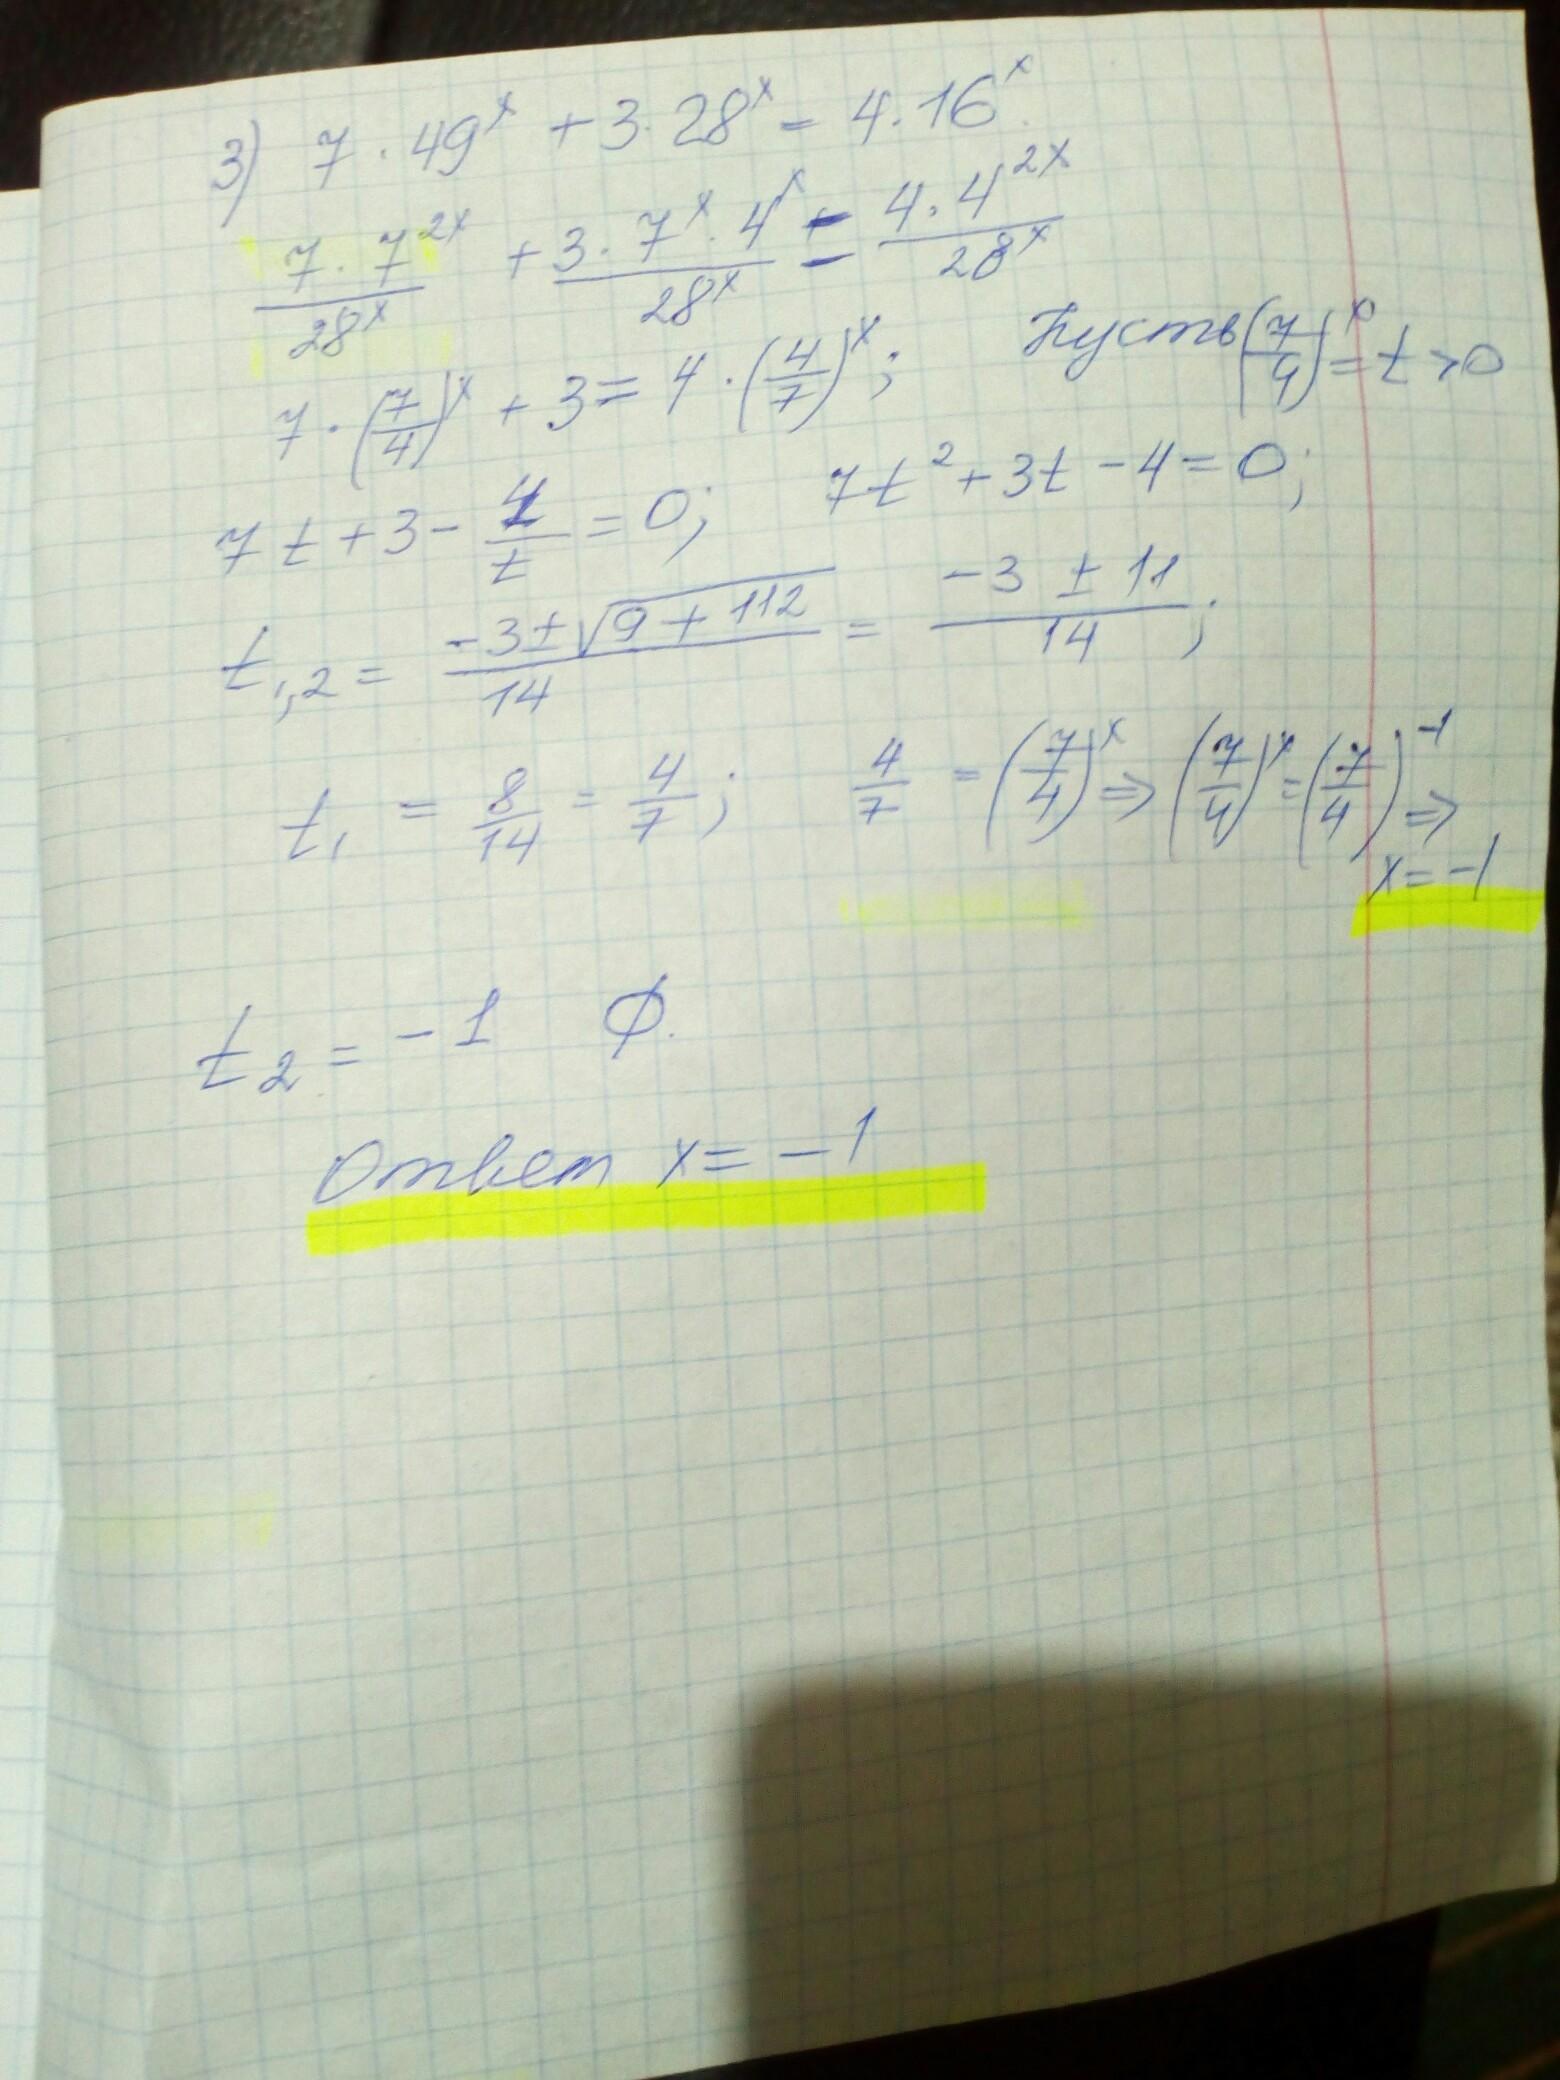 3) 7 · 49^x + 3 · 28^x = 4 · 16^x.
7 · 7^2x / 28^x + 3 · 7^x · 4^x / 28^x = 4 · 4^2x / 28^x
7 · (7/4)^x + 3 = 4 · (4/7)^x; Пусть (7/4)^x = t > 0
7t + 3 - 4/t = 0; 7t^2 + 3t - 4 = 0;
t1,2 = (-3 ± √(9 + 112)) / 14 = (-3 ± 11) / 14;
t1 = 8/14 = 4/7; 4/7 = (7/4)^x ⇒ (7/4)^x = (7/4)^-1 ⇒
x = -1
t2 = -1 ∅.
Ответ x = -1